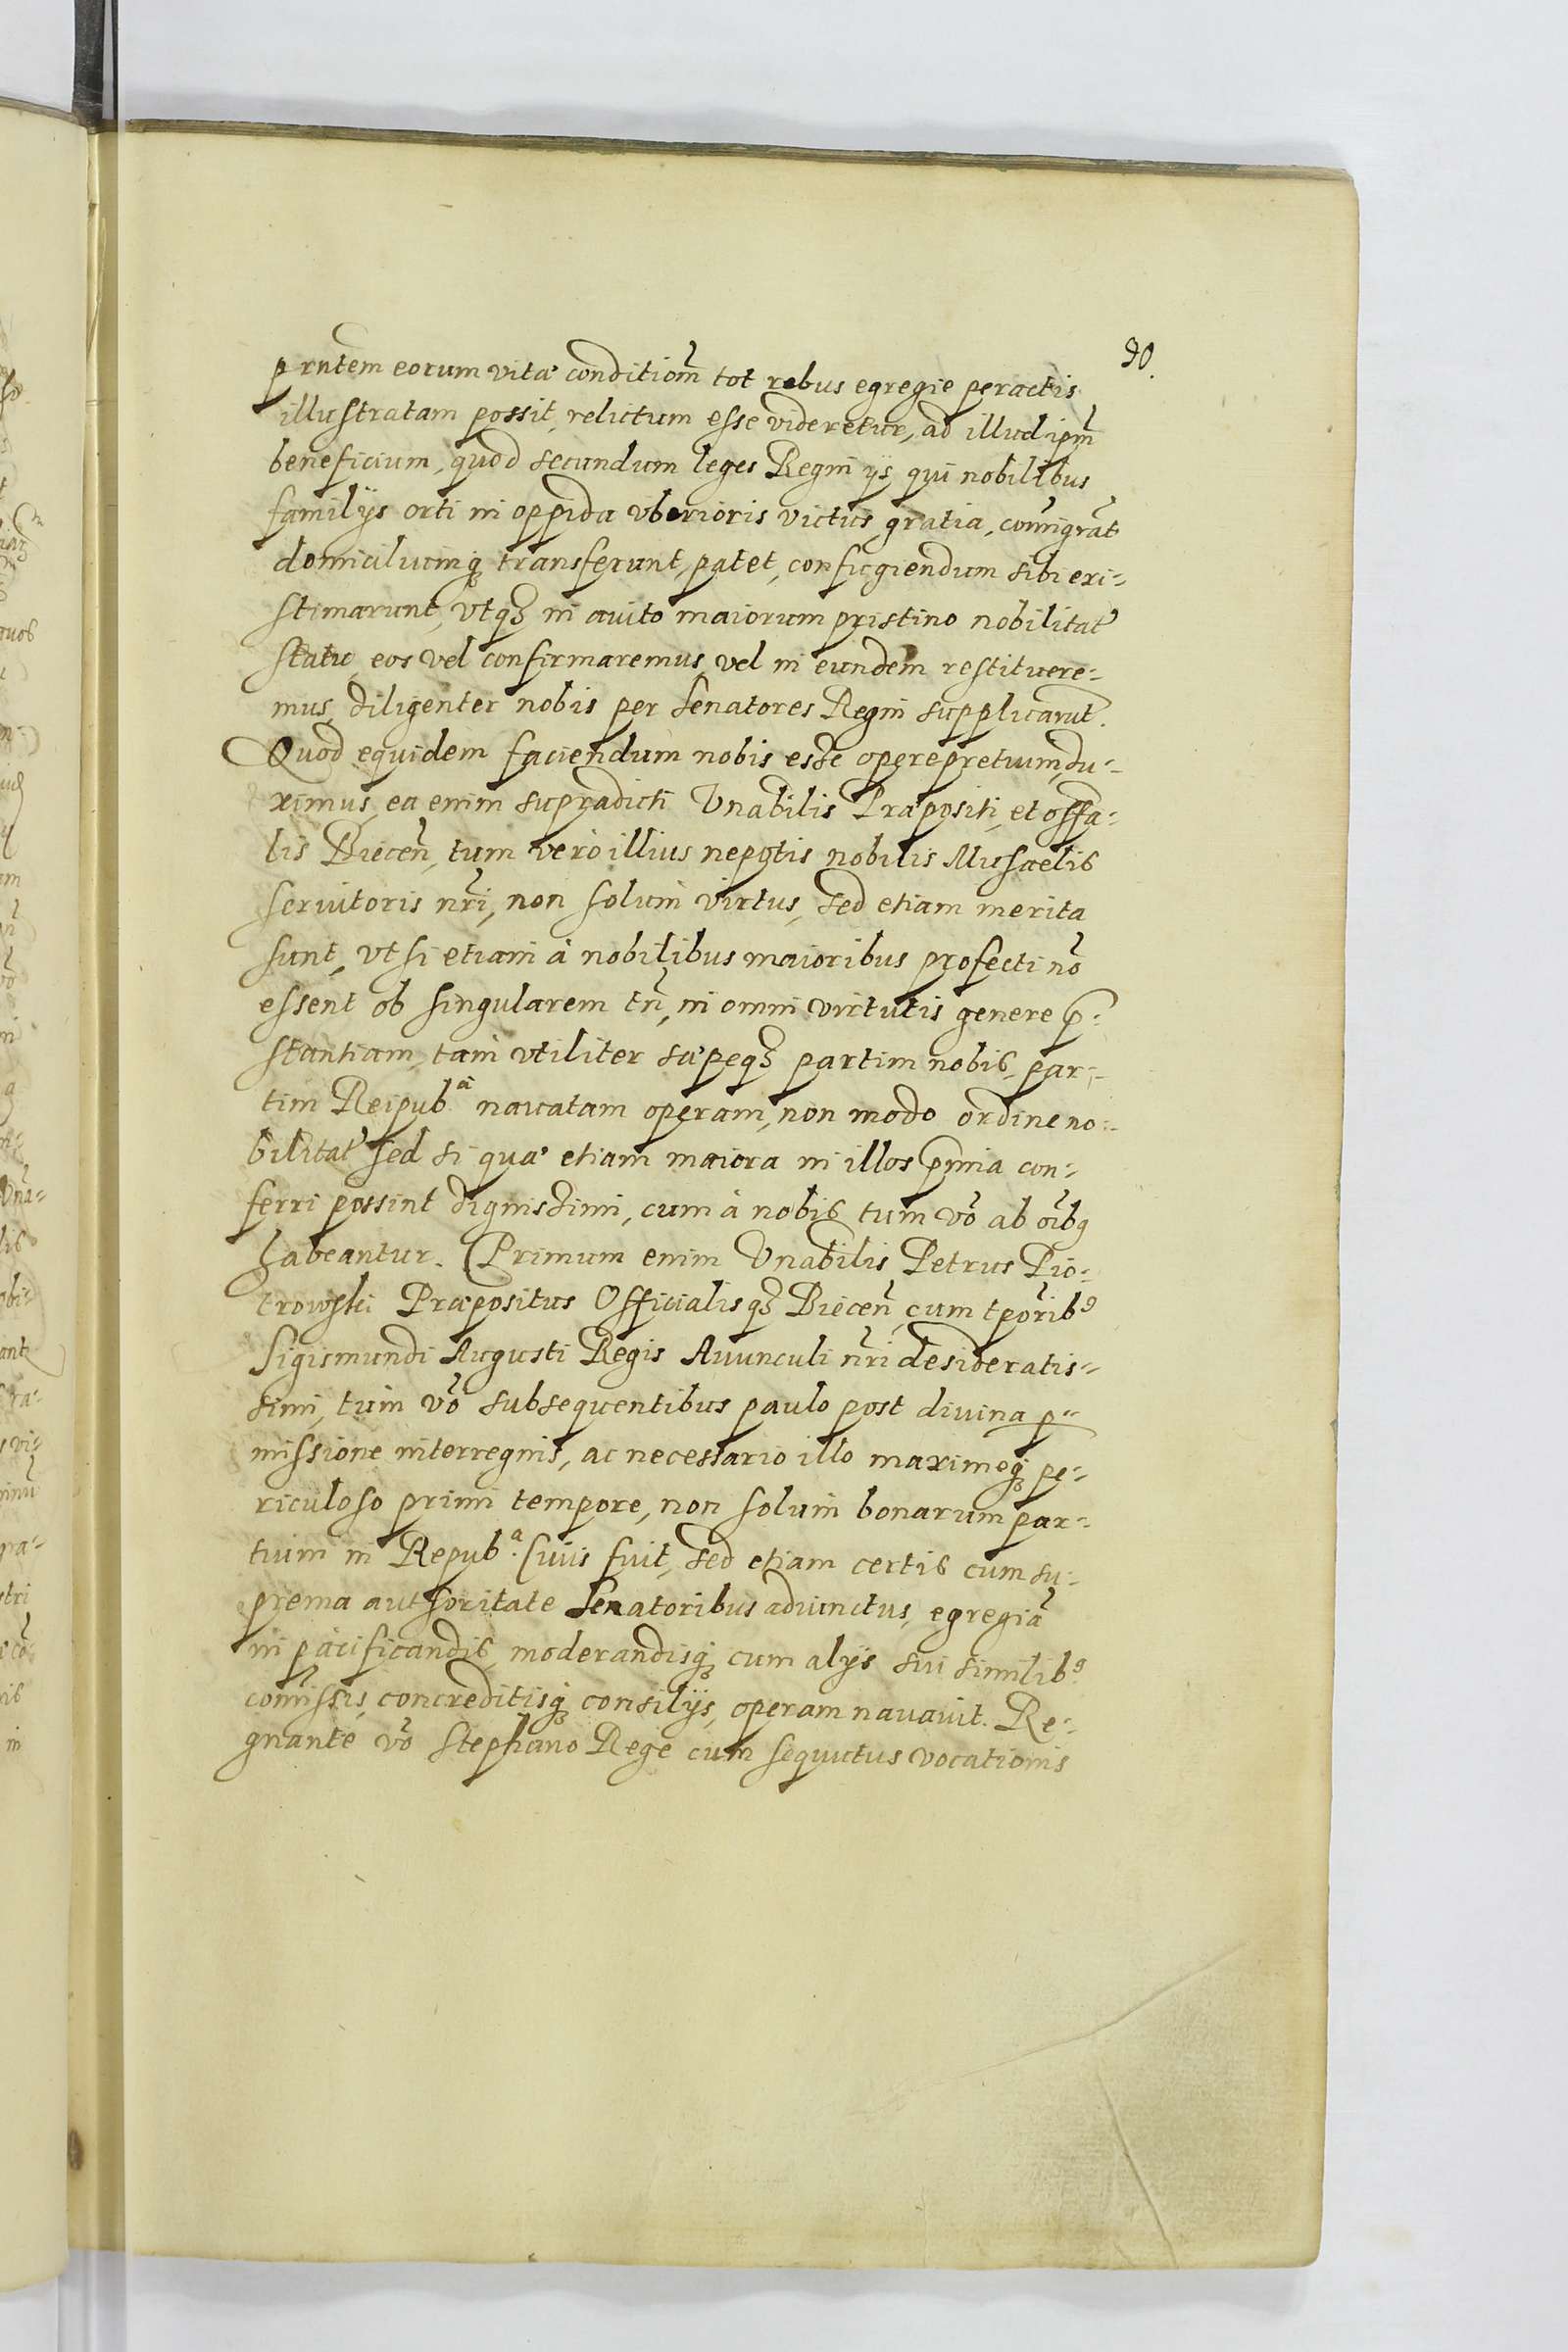 90.
prntem eorum vitæ conditiom̃ tot rebus egregie peractis
illustratam possit, relictum esse videretur, ad illud ipm̃
beneficium, quod secundum leges Regni ijs qui nobilibus
familijs orti in oppida vberioris victus gratia, com̃igrãt
domiciliumq₃ transferunt, patet, confugiendum sibi exi-
stimarunt, vtq₃ in auito maiorum pristino nobilitat⁹
statu, eos vel confirmaremus, vel in eundem restituere-
mus, diligenter nobis per Senatores Regni supplicarũt.
Quod equidem faciendum nobis esse operepretium du-
ximus, ea enim supradicti Vnabilis Præpositi, et offa-
lis Biecen̄, tum vero illius nepotis nobilis Misaelis
seruitoris nr̃i, non solum virtus, sed etiam merita
sunt, vt si etiam à nobilibus maioribus profecti nõ
essent ob singularem tñ, in omni virtutis genere p̃-
stantiam, tam vtiliter sæpeq₃ partim nobis, par-
tim Reipub.ᵃ nauatam operam, non modo ordine no-
bilitat⁹ sed si quæ etiam maiora in illos p̃mia con-
ferri possint dignissimi, cum à nobis tum võ ab oĩbq
habeantur. Primum enim Vnabilis Petrus Pio-
trowski Præpositus Officialisq₃ Biecen̄, cum tp̃orib⁹
Sigismundi Augusti Regis Auunculi nr̃i desideratis-
simi, tum võ subsequentibus paulo post diuina p-
missione interregnis, ac necessario illo maximeq₃ pe-
riculoso primi tempore, non solum bonarum par-
tium in Repub.ᵃ Ciuis fuit, sed etiam certis cum su-
prema authoritate Senatoribus adiunctus, egregiã
in pacificandis, moderandisq₃ cum alijs sui similib⁹
com̃issis, concreditisq₃ consilijs, operam nauauit. Re-
gnante võ Stephano Rege cum sequutus vocationis